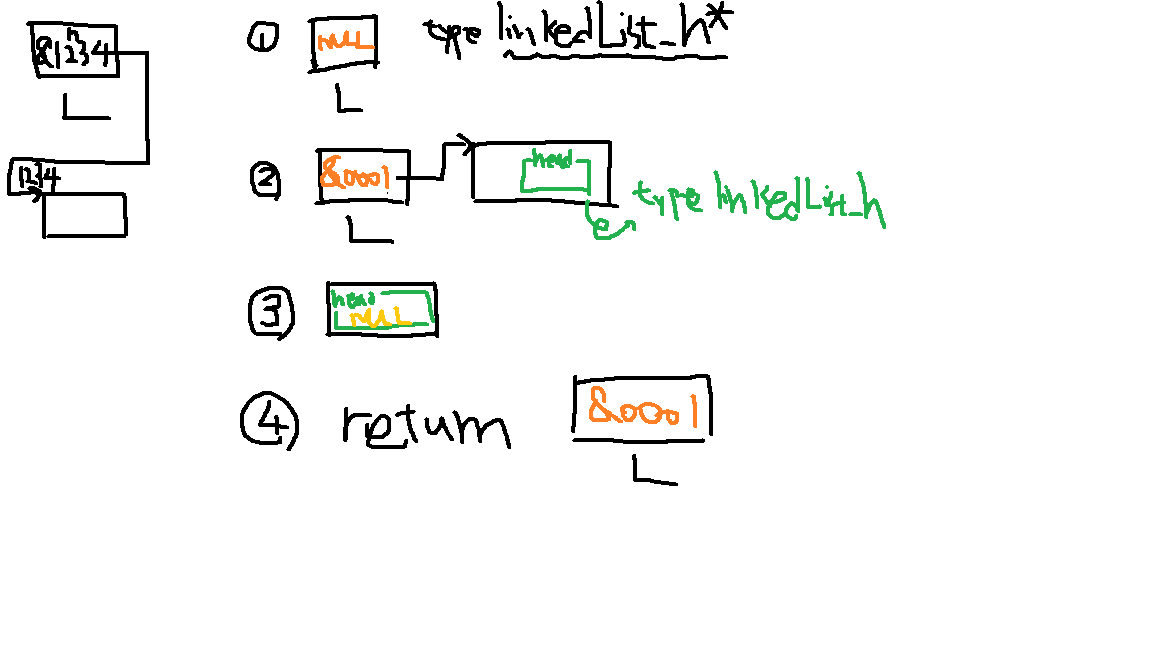 &1234
L
1234
① NULL type linkedList_h*
L
② &0001 head
type linkedList_h
L
③ head
NULL
④ return &0001
L